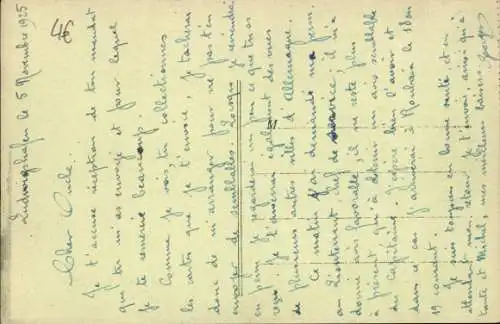 Ludwigshafen le 5 Novembre 1925
Cher Oncle.
Je t'accuse réception de ton mandat
que tu m'as envoyé et pour lequel
je te remercie beaucoup.
Comme je vois, tu collectionnes
les cartes que je t'envoie, je tâcherai
donc de m'arranger pour ne pas t'en
envoyer de semblables. Lorsque je reviendrai
en perm je regarderai un peu ce que tu as
reçu. Je t'enverrai également des vues
de plusieurs autres villes d'Allemagne.
Ce matin j'ai demandé ma perm.
au Lieutenant chef de service; il m'a
donné avis favorable; il ne reste plus
à présent qu'à obtenir un avis semblable
du Capitaine. J'espère bien l'avoir et
dans ce cas j'arriverai à Roubaix le 18 ou
19 courant.
Je suis toujours en bonne santé et en
attendant mon retour je t'envoi, ainsi qu'à
tante et Michel, mes meilleurs baisers. Georges